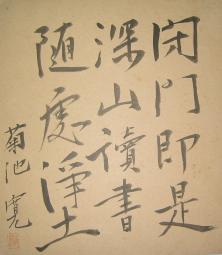 閉門即是
深山讀書
随處淨土
菊池寛